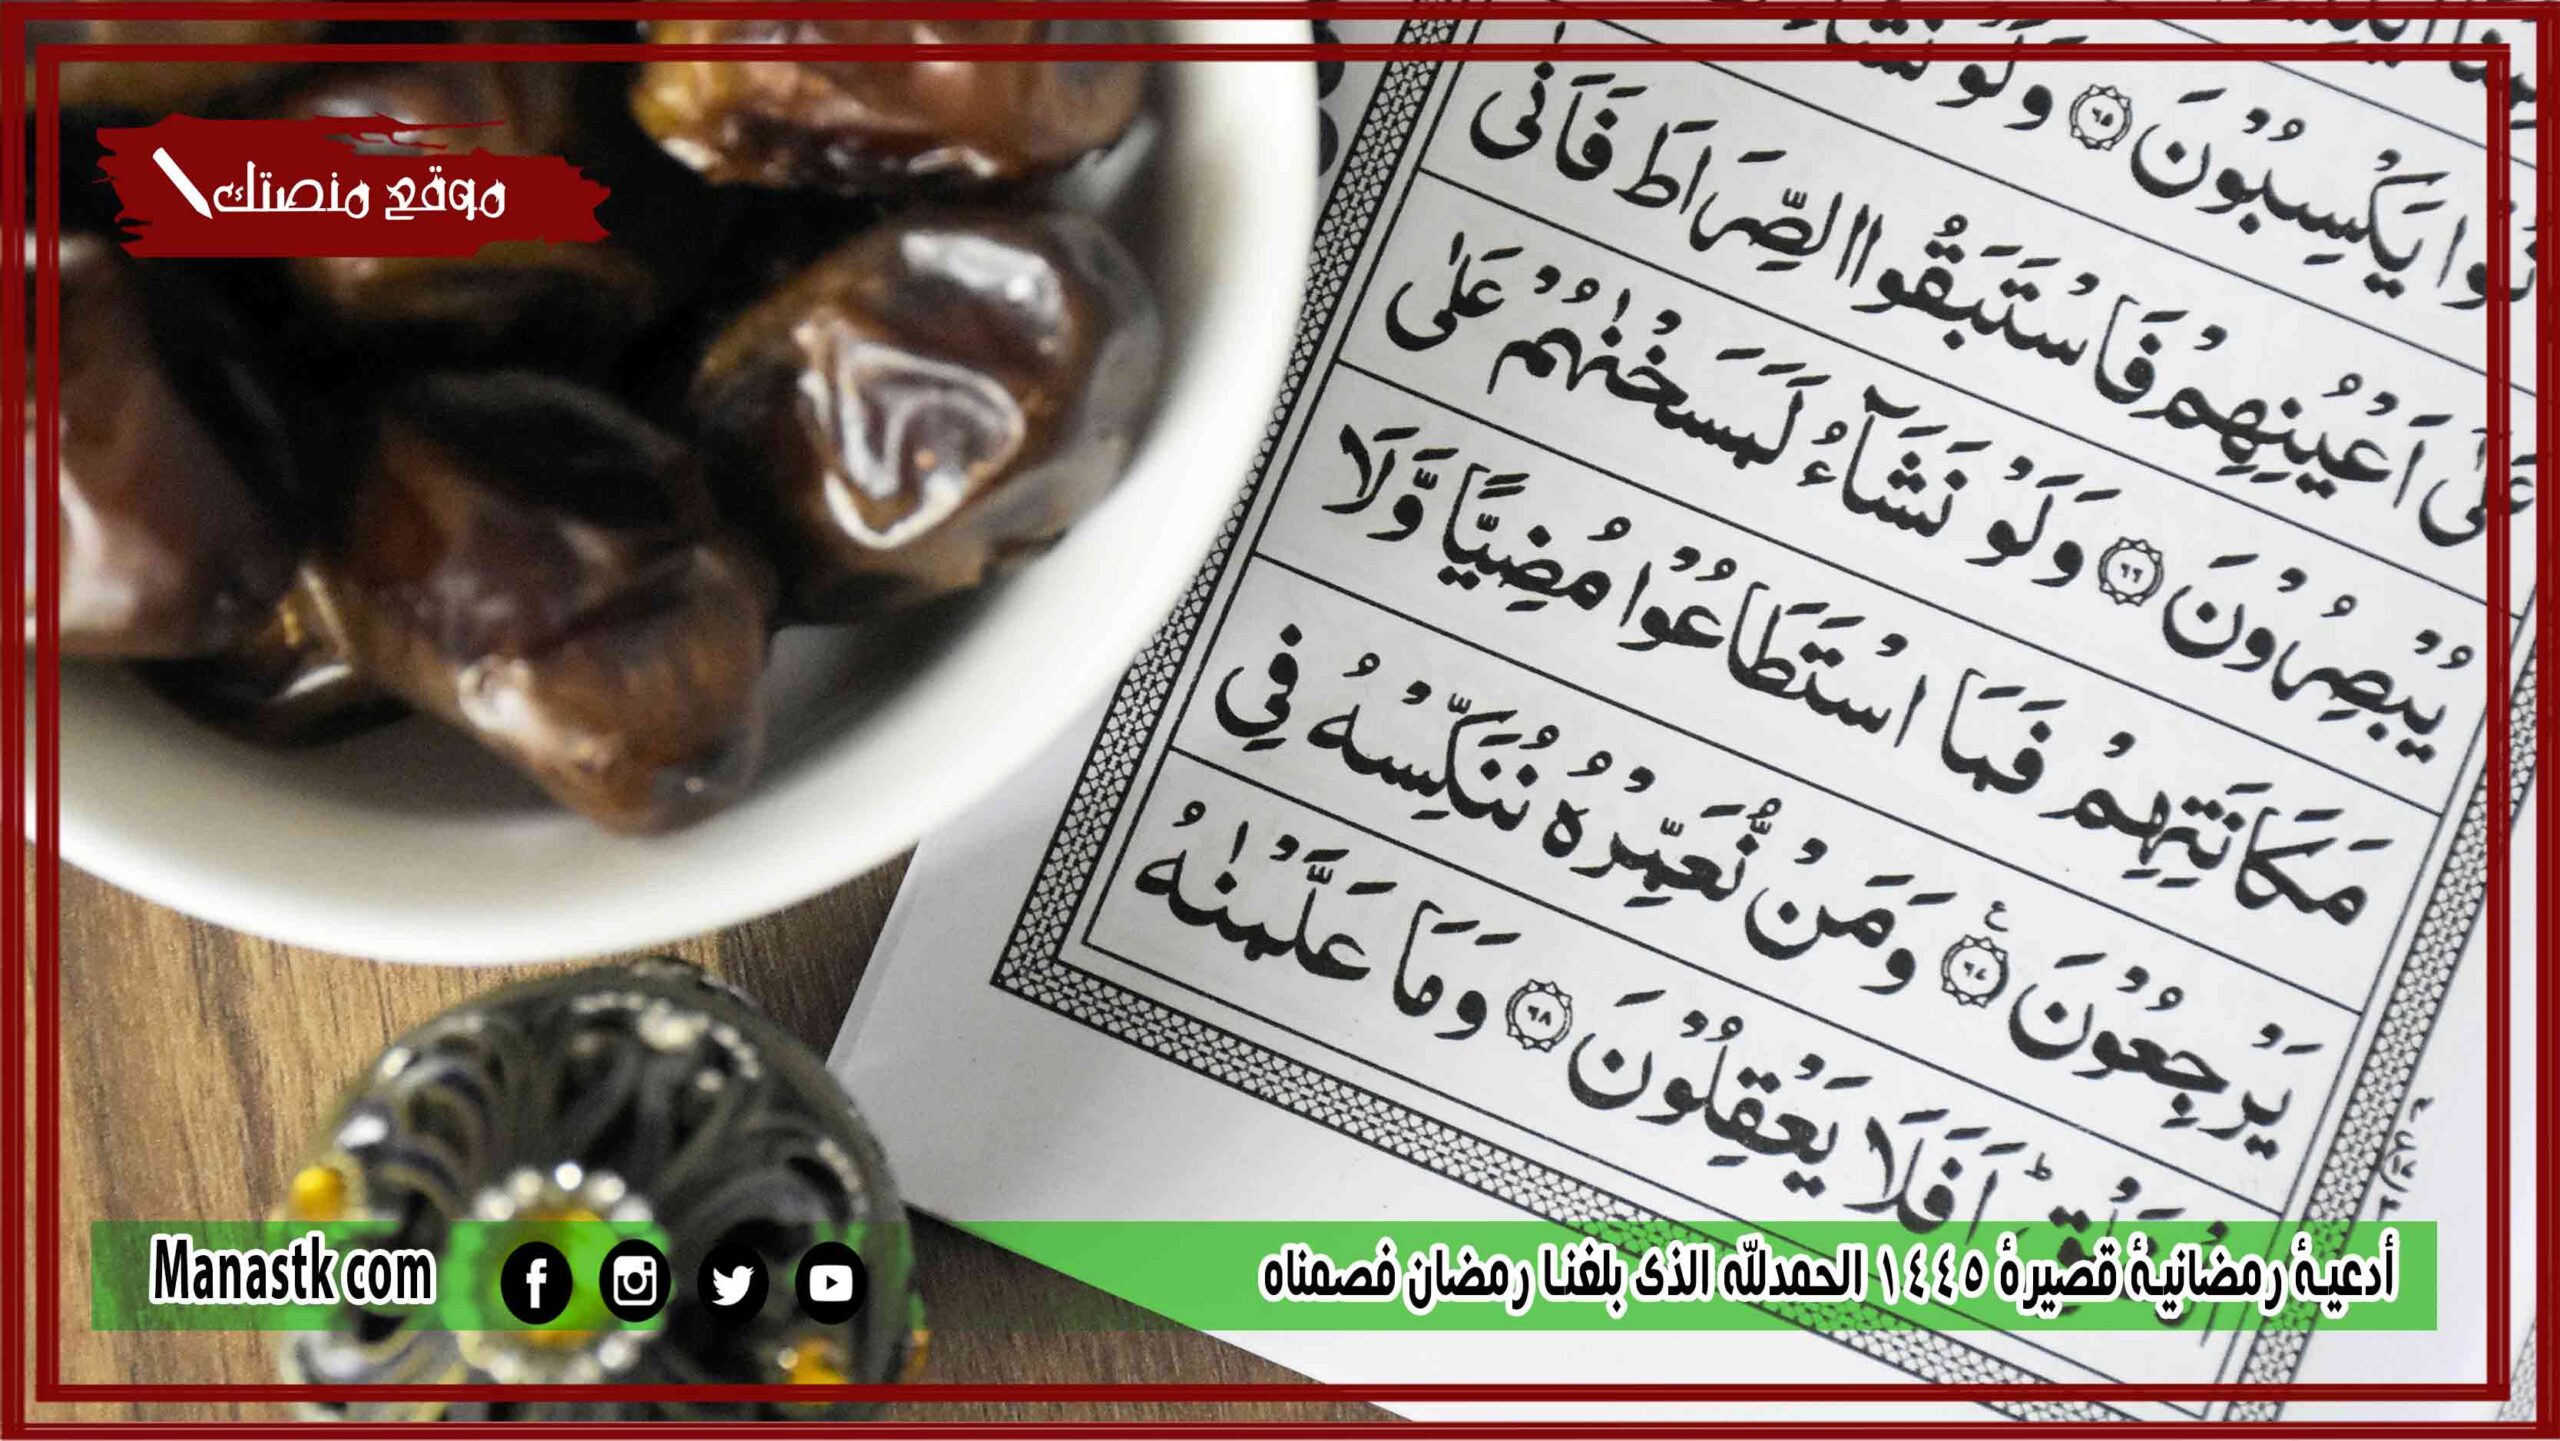 موقع منصتك
نُوْا يَكْسِبُوْنَ ۝٦٥ وَلَوْ
عَلٰٓى اَعْيُنِهِمْ فَاسْتَبَقُوا الصِّرَاطَ فَاَنّٰى
يُبْصِرُوْنَ ۝٦٦ وَلَوْ نَشَآءُ لَمَسَخْنٰهُمْ عَلٰى
مَكَانَتِهِمْ فَمَا اسْتَطَاعُوْا مُضِيًّا وَّلَا
يَرْجِعُوْنَ ۝٦٧ وَمَنْ نُّعَمِّرْهُ نُنَكِّسْهُ فِي
اَفَلَا يَعْقِلُوْنَ ۝٦٨ وَمَا عَلَّمْنٰهُ
أدعية رمضانية قصيرة ١٤٤٥ الحمدلله الذى بلغنا رمضان فصمناه
Manastk com